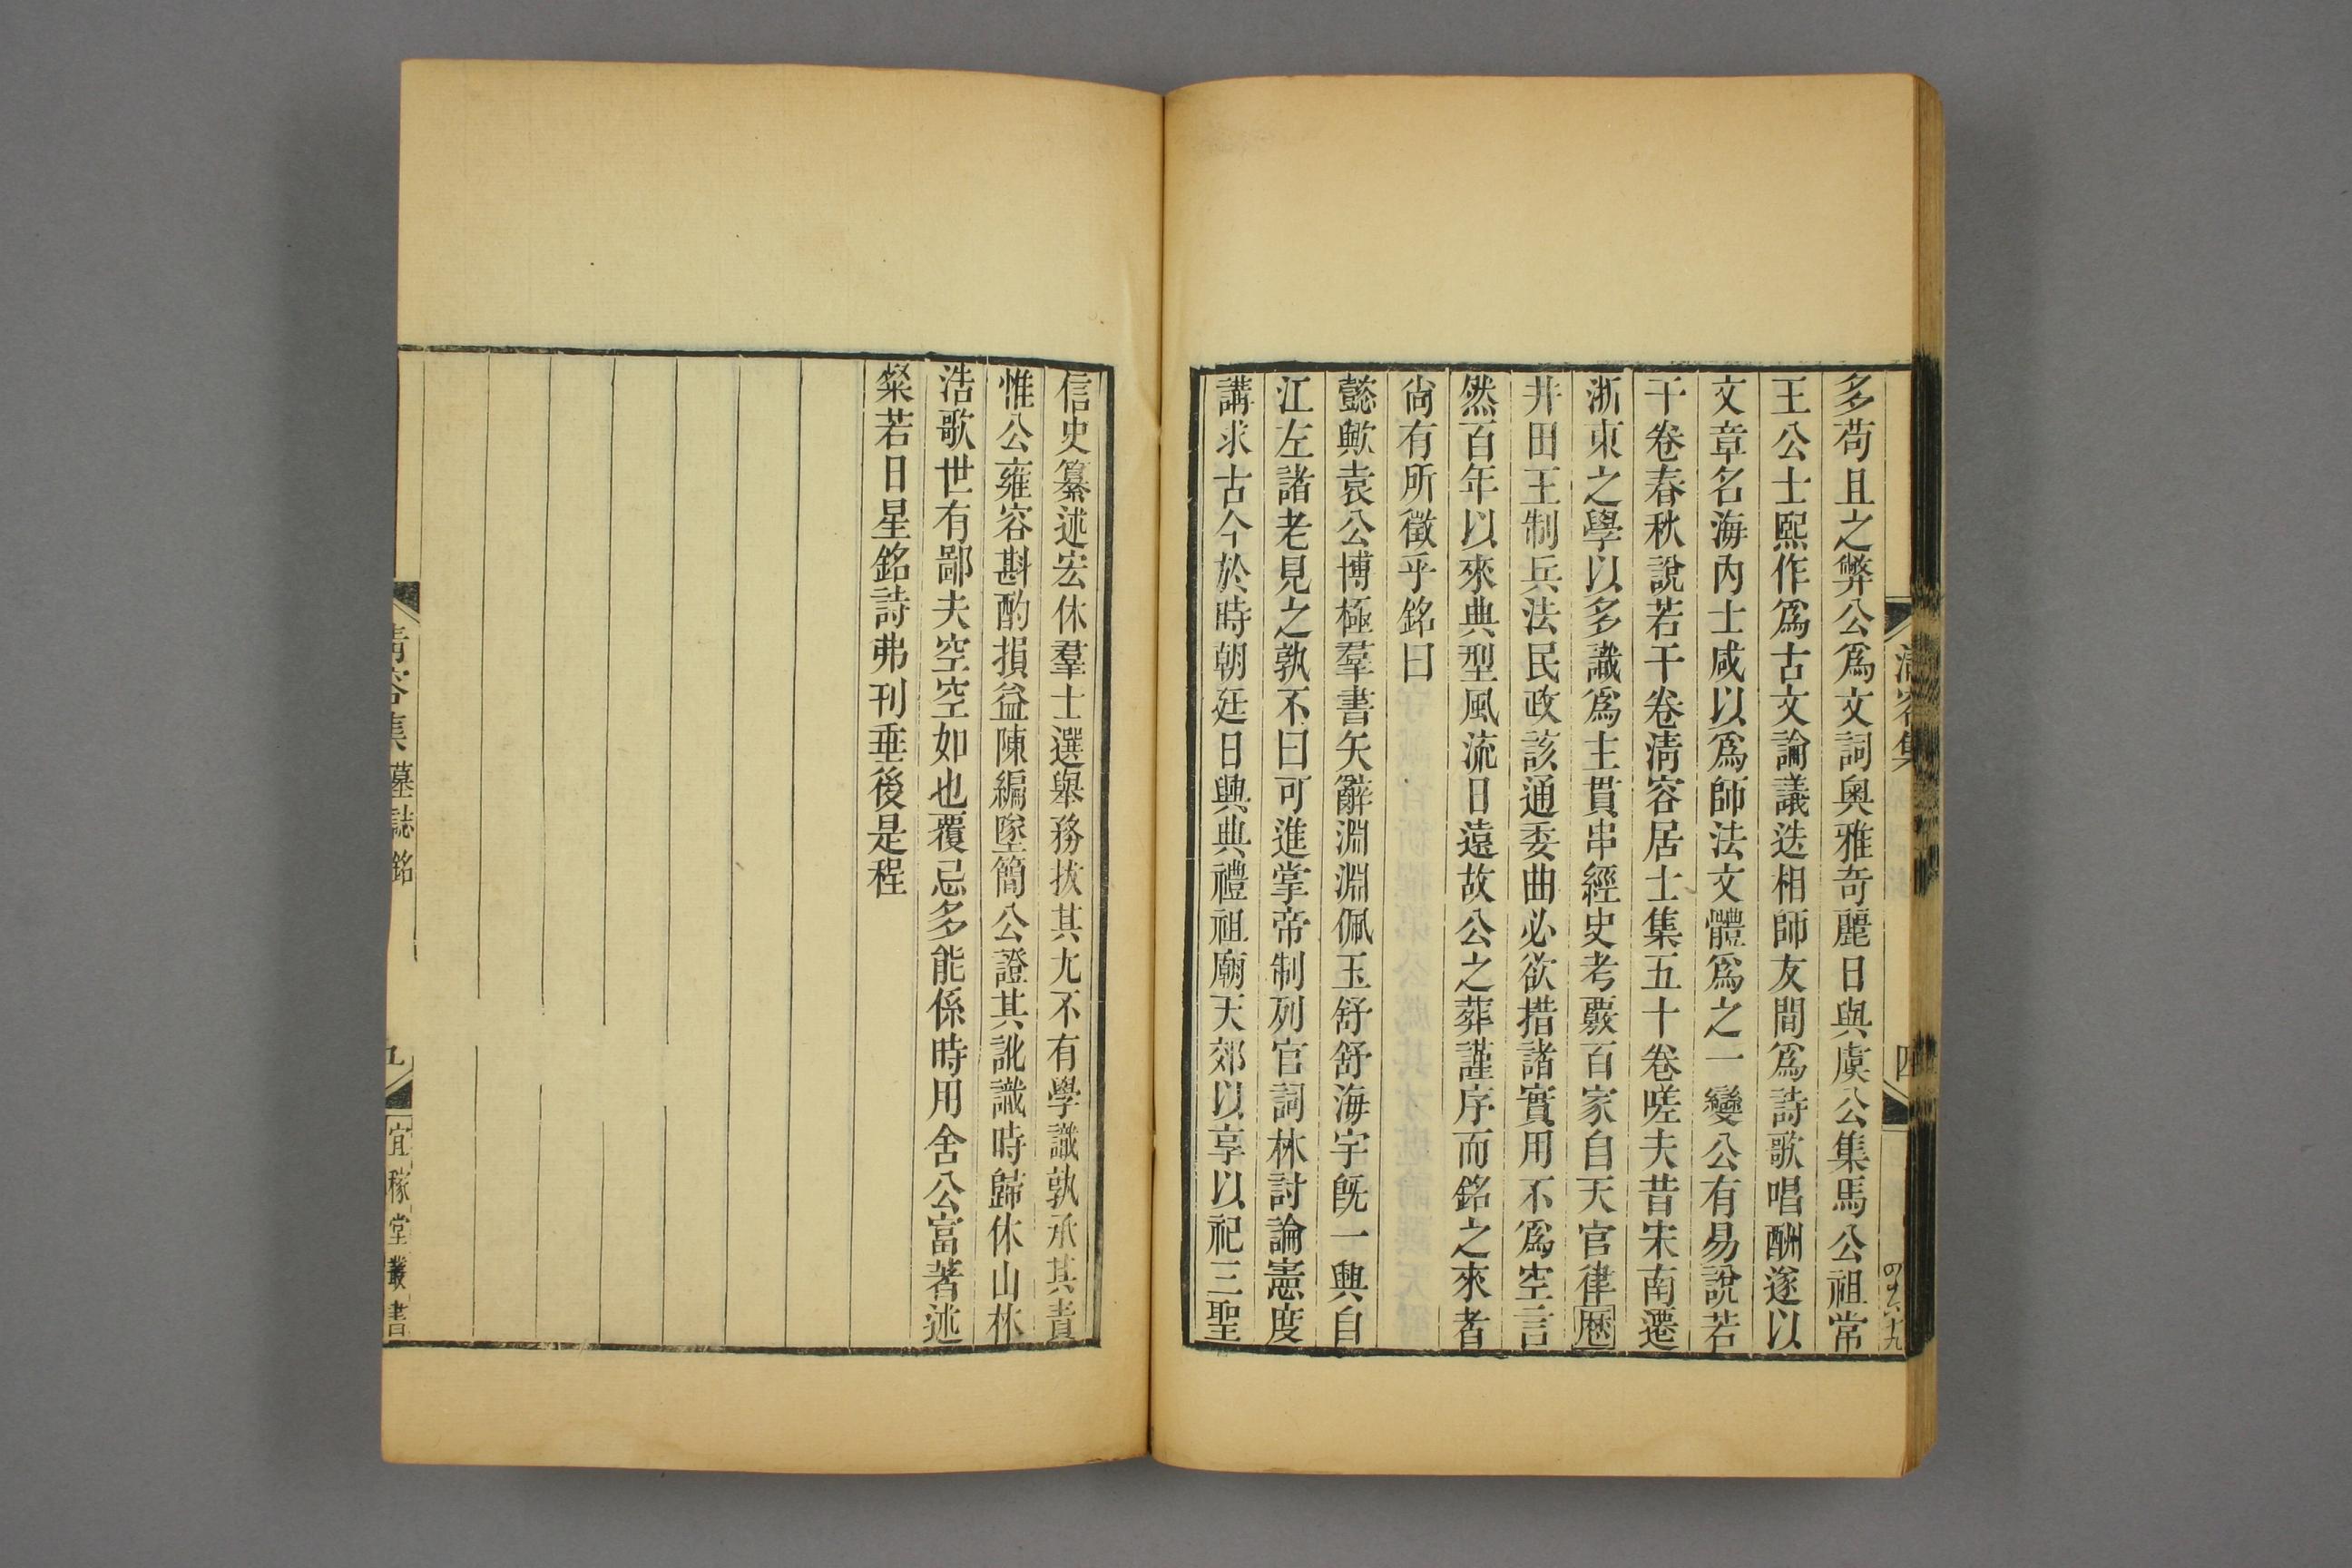 清容集
四
多苟且之弊公爲文詞奧雅奇麗日與虞公集馬公祖常
王公士熙作爲古文論議迭相師友間爲詩歌唱酬遂以
文章名海內士咸以爲師法文體爲之一變公有易說若
干卷春秋說若干卷淸容居士集五十卷嗟夫昔宋南遷
浙東之學以多識爲主貫串經史考覈百家自天官律歷
井田王制兵法民政該通委曲必欲措諸實用不爲空言
然百年以來典型風流日遠故公之葬謹序而銘之來者
尙有所徵乎銘曰
懿歟袁公博極羣書矢辭淵淵佩玉舒舒海宇旣一興自
江左諸老見之孰不曰可進掌帝制列官詞林討論憲度
講求古今於時朝廷日興典禮祖廟天郊以享以祀三聖
信史纂述宏休羣士選舉務拔其尤不有學識孰承其責
惟公雍容斟酌損益陳編墜簡公證其訛識時歸休山林
浩歌世有鄙夫空空如也覆忌多能係時用舍公富著述
粲若日星銘詩弗刊垂後是程
清容集 墓誌銘
五
宜稼堂叢書